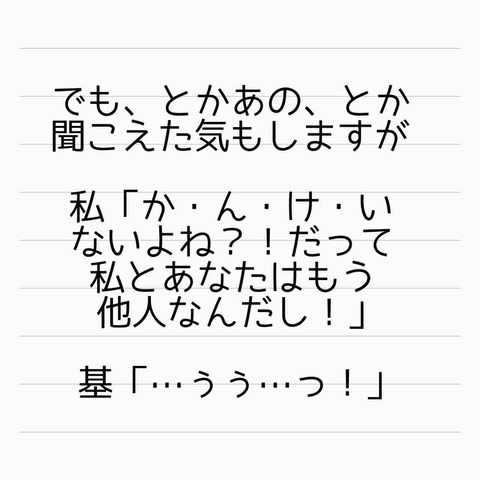 でも、とかあの、とか
聞こえた気もしますが
私「か・ん・け・い
ないよね？！だって
私とあなたはもう
他人なんだし！」
基「…ぅぅ…っ！」